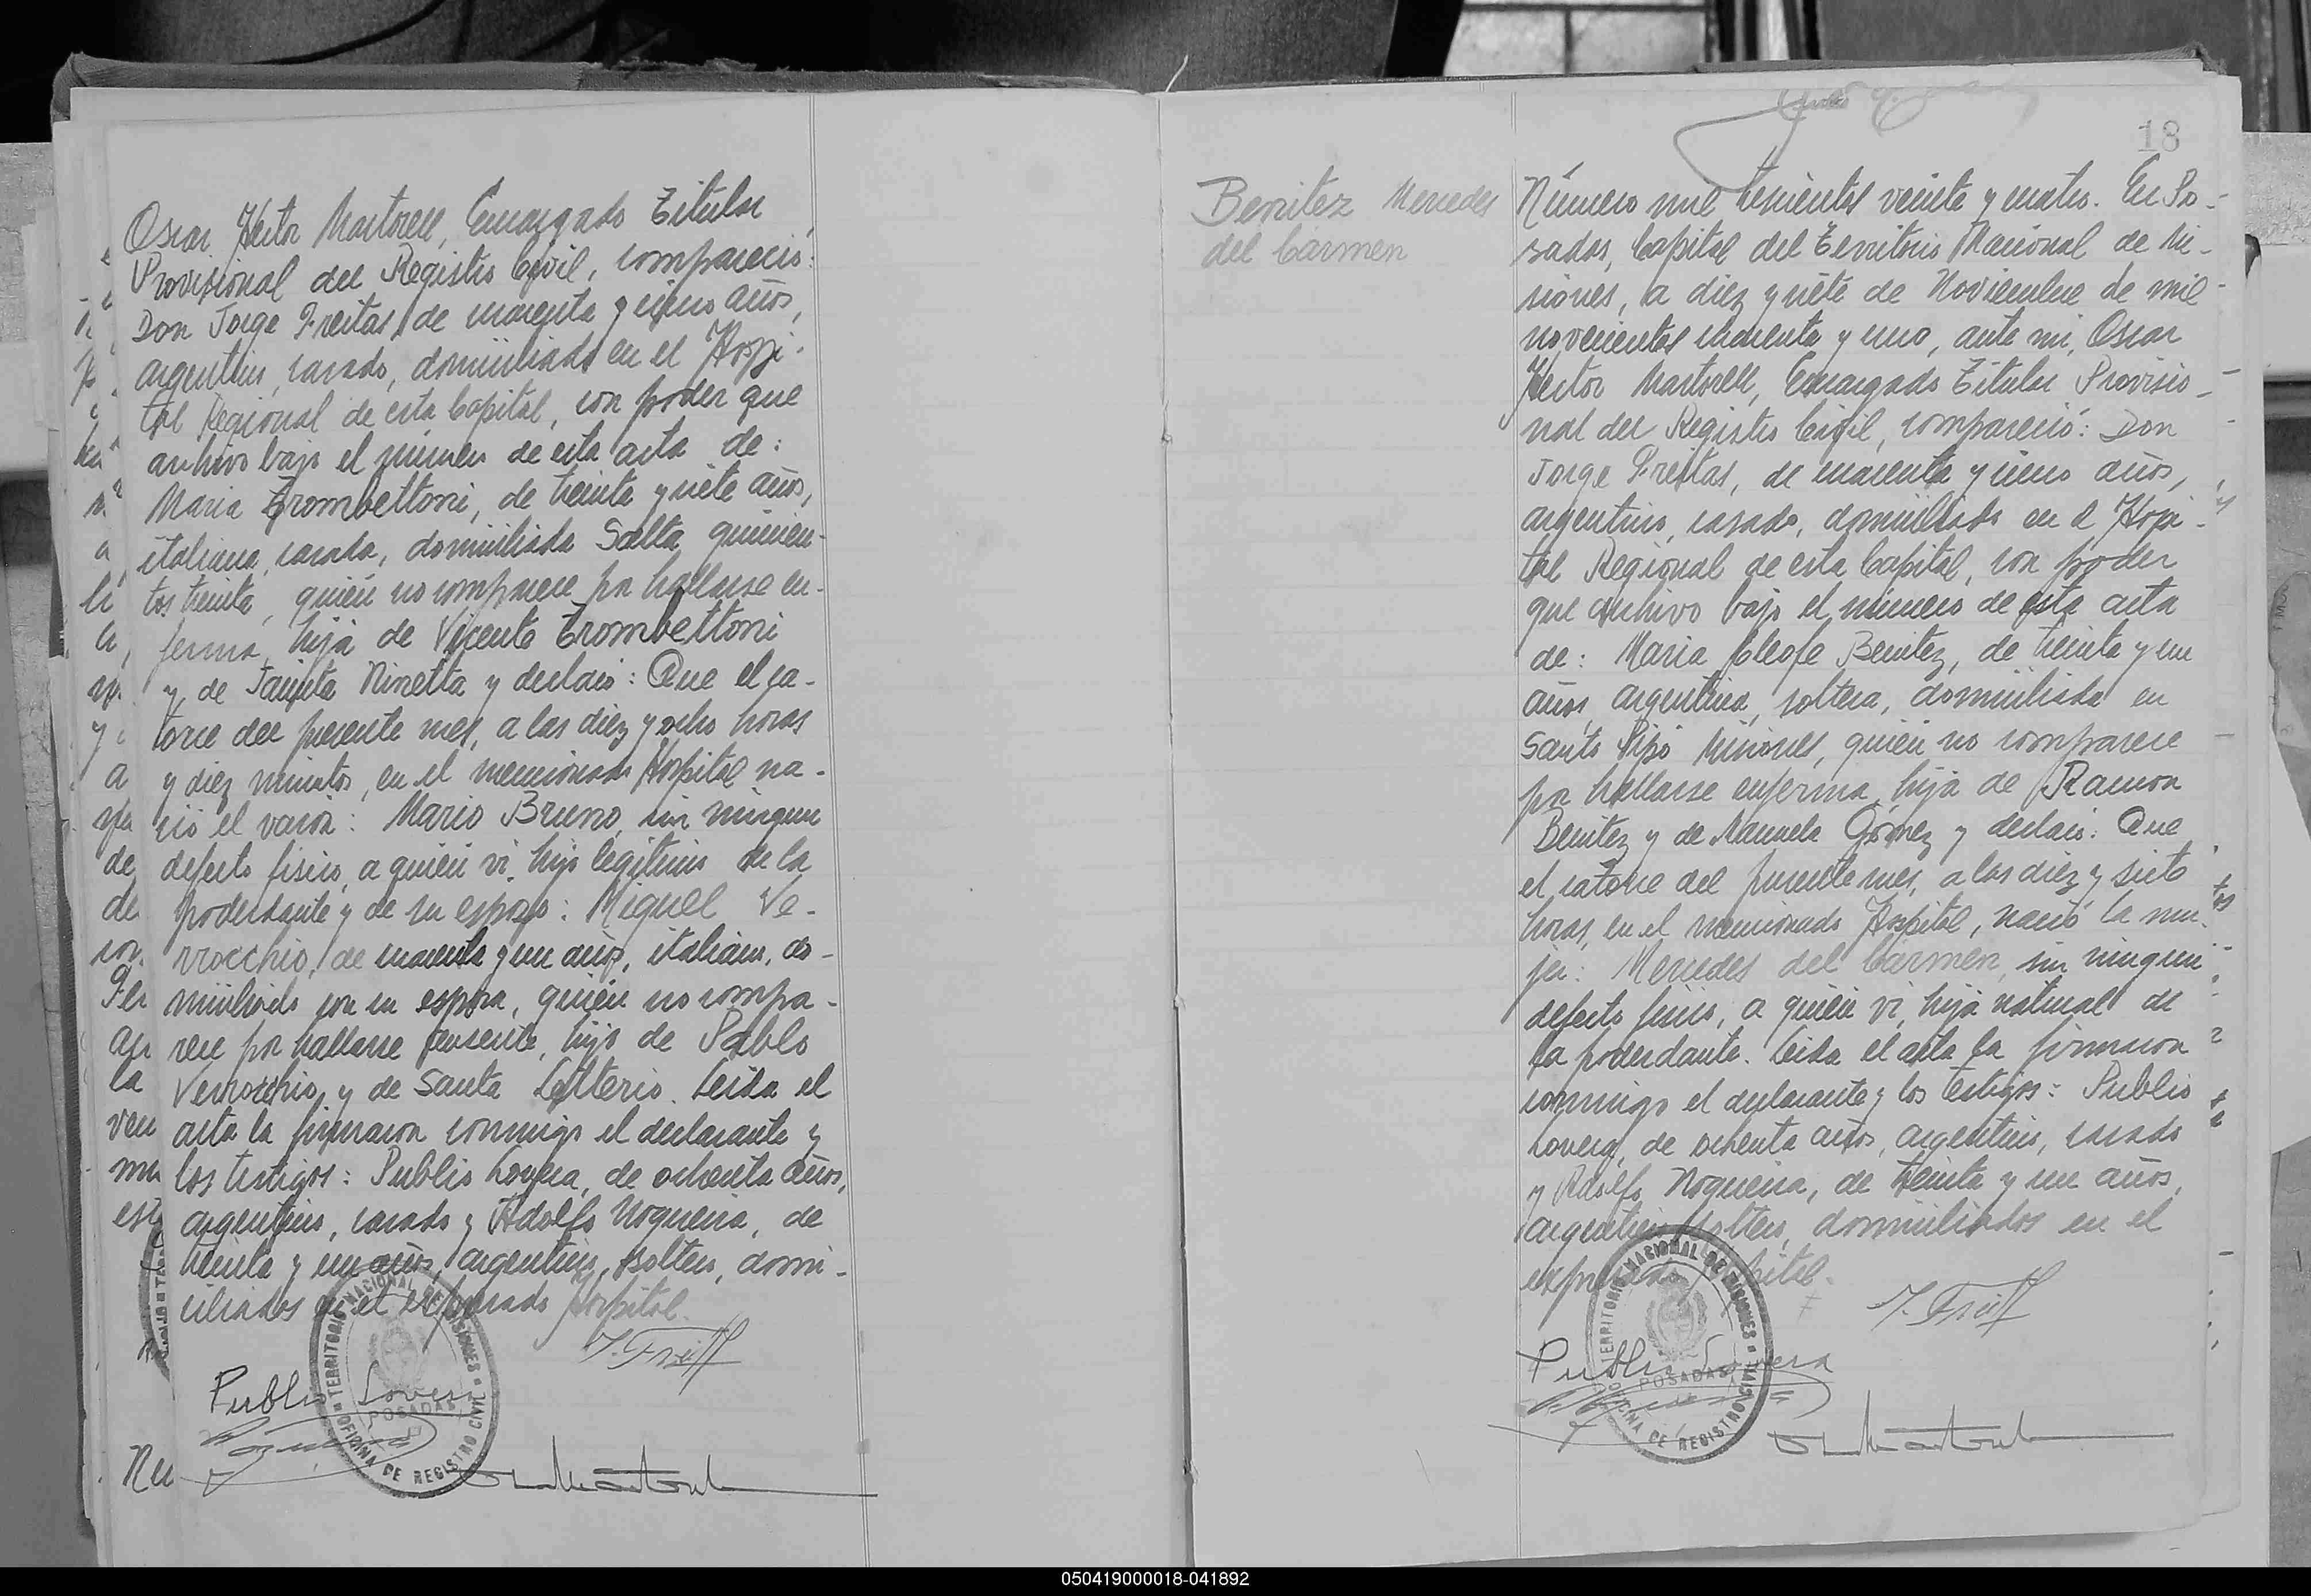 Oscar Hector Martorell, Encargado Titular
Provisional del Registro Civil, compareció:
Don Jorge Freitas, de cuarenta y cinco años,
argentino, casado, domiciliado en el Hospi-
tal Regional de esta Capital, con poder que
archivo bajo el número de esta acta de:
Maria Trombettoni, de treinta y siete años,
italiana, casada, domiciliada Salta quinien-
tos treinta, quién no comparece por hallarse en-
ferma, hija de Vicente Trombettoni
y de Ninetta y declaró: Que el ca-
torce del presente mes, a las diez y ocho horas
y diez minutos, en el mencionado Hospital na-
ció el varón: Mario Bruno, sin ningun
defecto fisico, a quién vi, hijo legitimo de la
poderdante y de su esposo: Miguel Ve-
rrocchio, de cuarenta y un años, italiano, do-
miciliado con su esposa, quién no compa-
rece por hallarse ausente, hijo de Pablo
Verrocchio y de Santa Letterio. Leida el
acta la firmaron conmigo el declarante y
los testigos: Publio Lovera, de ochenta años,
argentino, casado y Adolfo Nogueira, de
treinta y un años, argentino, soltero, domi-
ciliados en el expresado Hospital.
J. Freit
Publio Lovera
TERRITORIO NACIONAL DE MISIONES
POSADAS
OFICINA DE REGISTRO CIVIL
18
Benitez Mercedes
del Carmen
Número mil trescientos veinte y cuatro. En Po-
sadas, Capital del Territorio Nacional de Mi-
siones, a diez y siete de Noviembre de mil
novecientos cincuenta y uno, ante mi, Oscar
Hector Martorell, Encargado Titular Provisio-
nal del Registro Civil, compareció: Don
Jorge Freitas, de cuarenta y cinco años,
argentino, casado, domiciliado en el Hospi-
tal Regional de esta Capital, con poder
que archivo bajo el número de esta acta
de: Maria Cleofe Benitez, de treinta y un
años, argentina, soltera, domiciliada en
Santo Pipó Misiones, quién no comparece
por hallarse enferma, hija de Ramon
Benitez y de Manuela Gómez y declaró: Que
el catorce del presente mes, a las diez y siete
horas, en el mencionado Hospital, nació la mu-
jer: Mercedes del Carmen, sin ningun
defecto fisico, a quién vi, hija natural de
la poderdante. Leida el acta la firmaron
conmigo el declarante y los testigos: Publio
Lovera, de ochenta años, argentino, casado
y Adolfo Nogueira, de treinta y un años,
argentino, soltero, domiciliados en el
expresado Hospital.
J. Freit
Publio Lovera
TERRITORIO NACIONAL DE MISIONES
POSADAS
OFICINA DE REGISTRO CIVIL
050419000018-041892